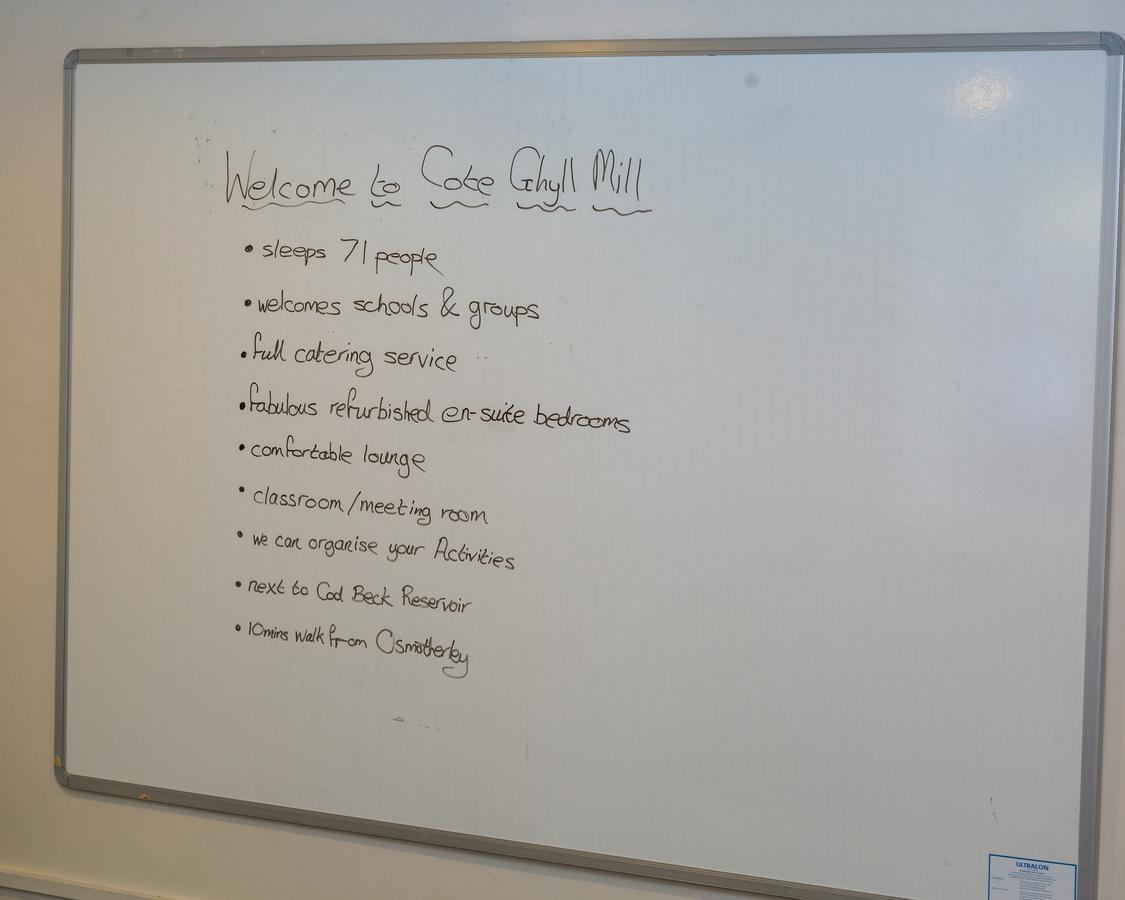 Welcome to Cote Ghyll Mill
• sleeps 71 people
• welcomes schools & groups
• full catering service
• fabulous refurbished en-suite bedrooms
• comfortable lounge
• classroom/meeting room
• we can organise your Activities
• next to Cod Beck Reservoir
• 10mins walk from Osmotherley
ULTRALON